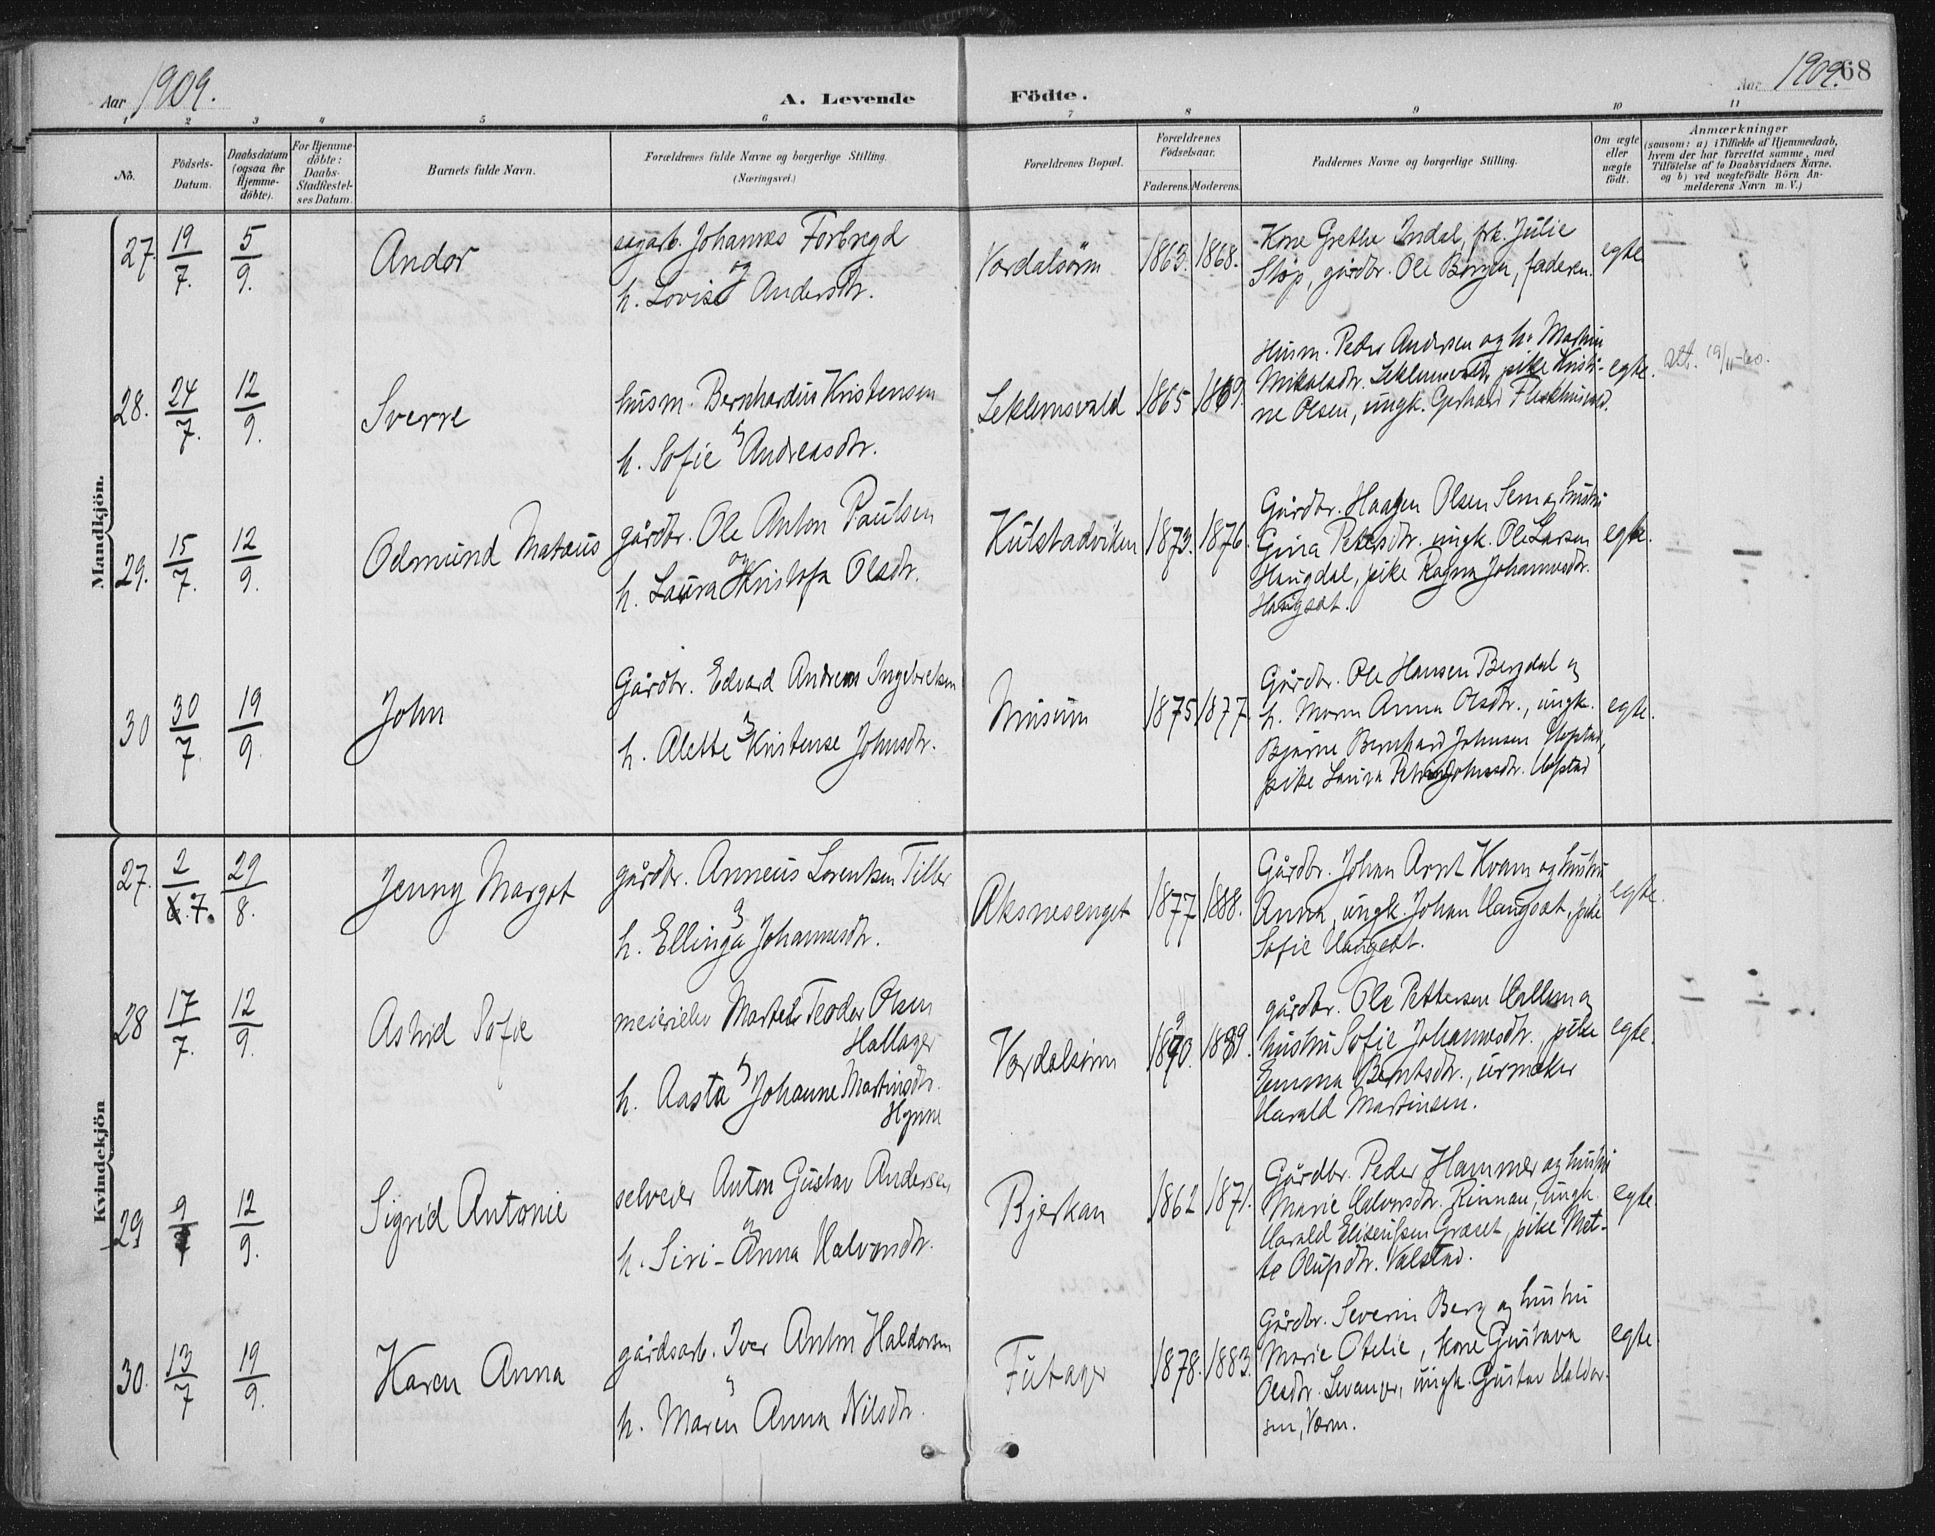 Aar 1909.
A. Levende Födte.
Aar 1909. 68
1 2 3 4 5 6 7 8 9 10 11
No.
Födsels-Datum.
Daabsdatum (ogsaa for Hjemme-döbte).
For Hjemme-döbte: Daabs-Stadfæstel-ses Datum.
Barnets fulde Navn.
Forældrenes fulde Navne og borgerlige Stilling.
(Næringsvei.)
Forældrenes Bopæl.
Forældrenes Födselsaar.
Faderens. Moderens.
Faddernes Navne og borgerlige Stilling.
Om ægte eller uægte födt.
Anmærkninger
(saasom: a) i Tilfælde af Hjemmedaab,
hvem der har forrettet samme, med
Tilföielse af to Daabsvidners Navne.
og b) ved uægtefödte Börn An-
melderens Navn m. V.)
Mandkjön.
27. 19/7. 5/9. Andor
sagarb. Johannes Forbregd
og
h. Lovise Andersdtr.
Værdalsøren 1863. 1868.
Kone Grethe Indal, frk. Julie
Støp, gårdbr. Ole Borgen, faderen.
egte
28. 24/7. 12/9. Sverre
husm. Bernhardus Kristensen
og
h. Sofie Andreasdtr.
Leklemsvald 1865 1869.
Husm. Peder Andersen og h.
Mikalsdtr. Leklemsvald, pike Kristi-
ne Olsen, ungk. Gerhard
egte.
29. 15/7. 12/9. Odmund Matæus
gårdbr. Ole Anton Paulsen
og
h. Laura Kristofa Olsdtr.
Kulstadviken 1873. 1876
Gårdbr. Haagen Olsen Sem og hustru
Gina Petersdtr. ungk. Ole Larsen
Haugdal, pike Ragna Johannesdtr.
Haugsat.
egte.
30 30/7. 19/9. John
Gårdbr. Edvard Andreas Ingebretsen
og
h. Alette Kristense Johnsdtr.
Musum 1875 1877.
Gårdbr. Ole Hansen Bergdal og
h. Maren Anna Olsdtr., ungk.
Bjarne Bernhard Johnsen
pike Laura
egte.
Kvindekjön
27. 2/7. 29/8. Jenny Margot
gårdbr. Anneus Lorentsen Tiller
og
h. Ellinga Johannesdtr.
Aksnesenget 1877 1888.
Gårdbr. Johan Arnt Kvam og hustru
Anna, ungk. Johan Haugsat, pike
Sofie Haugsat.
egte.
28 17/7. 12/9. Astrid Sofie
Teodor Olsen
Hallager
og
h. Aasta Johanne Martinsdtr.
Hynne
Værdalsøren 1889.
gårdbr. Ole Pettersen Hallem og
hustru Sofie Johannesdtr., pike
Emma Berntsdtr., urmaker
Harald Martinsen.
egte.
29 9/7 12/9. Sigrid Antonie
selveier Anton Gustav Andersen
og
h. Siri-Anna Halvorsdtr.
Bjerkan 1862 1871.
Gårdbr. Peder Hammer og hustru
Marie Halvorsdtr. Rinnan, ungk.
Harald Græset, pike Met-
te Olufsdtr. Valstad.
egte.
30. 13/7 19/9. Karen Anna
gårdsarb. Iver Anton Haldorsen
og
h. Maren Anna Nilsdtr.
Futager 1878. 1883.
Gårdbr. Severin Berg og hustru
Marie Otelie, kone Gustava
Olsdtr. Levanger, ungk. Gustav Haldor-
sen,
egte